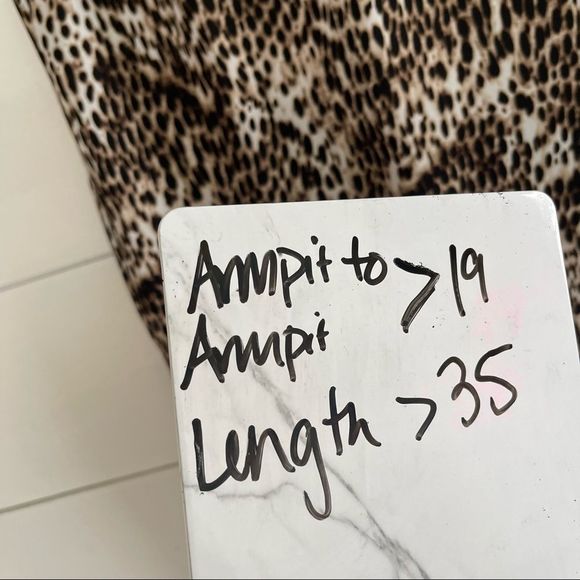 Armpit to > 19
Armpit
Length > 35